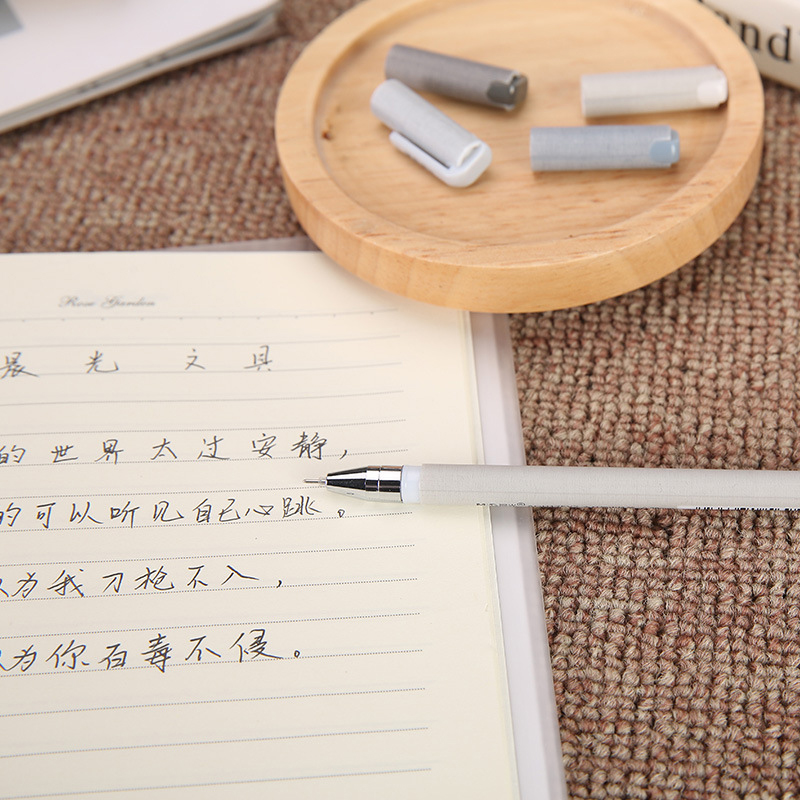 and
Rose Garden
晨光文具
的世界太过安静，
的可以听见自己心跳。
以为我刀枪不入，
以为你百毒不侵。